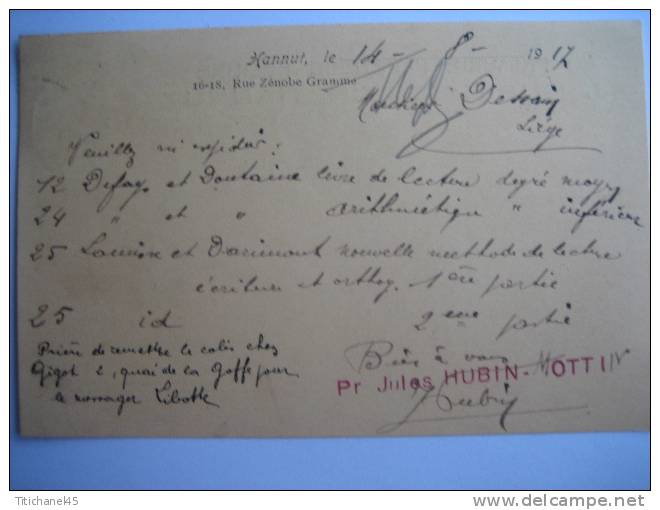 Hannut, le 14 - 8 - 1917
16-18, Rue Zénobe Gramme
Monsieur Dessain
Liège
Veuillez m'expédier :
12 Defays et Dontaine livre de lecture degré moyen
24 " et " arithmétique " inférieur
25 et Darimont nouvelle methode de lecture
écriture et orthog. 1ère partie
25 id 2eme partie
Prière de remettre le colis chez
Gigot 2, quai de la Goffe pour
le messager Libotte
Bien à vous
Pr Jules HUBIN- OTTIN
Hubin
Titichane45
delcampe.net